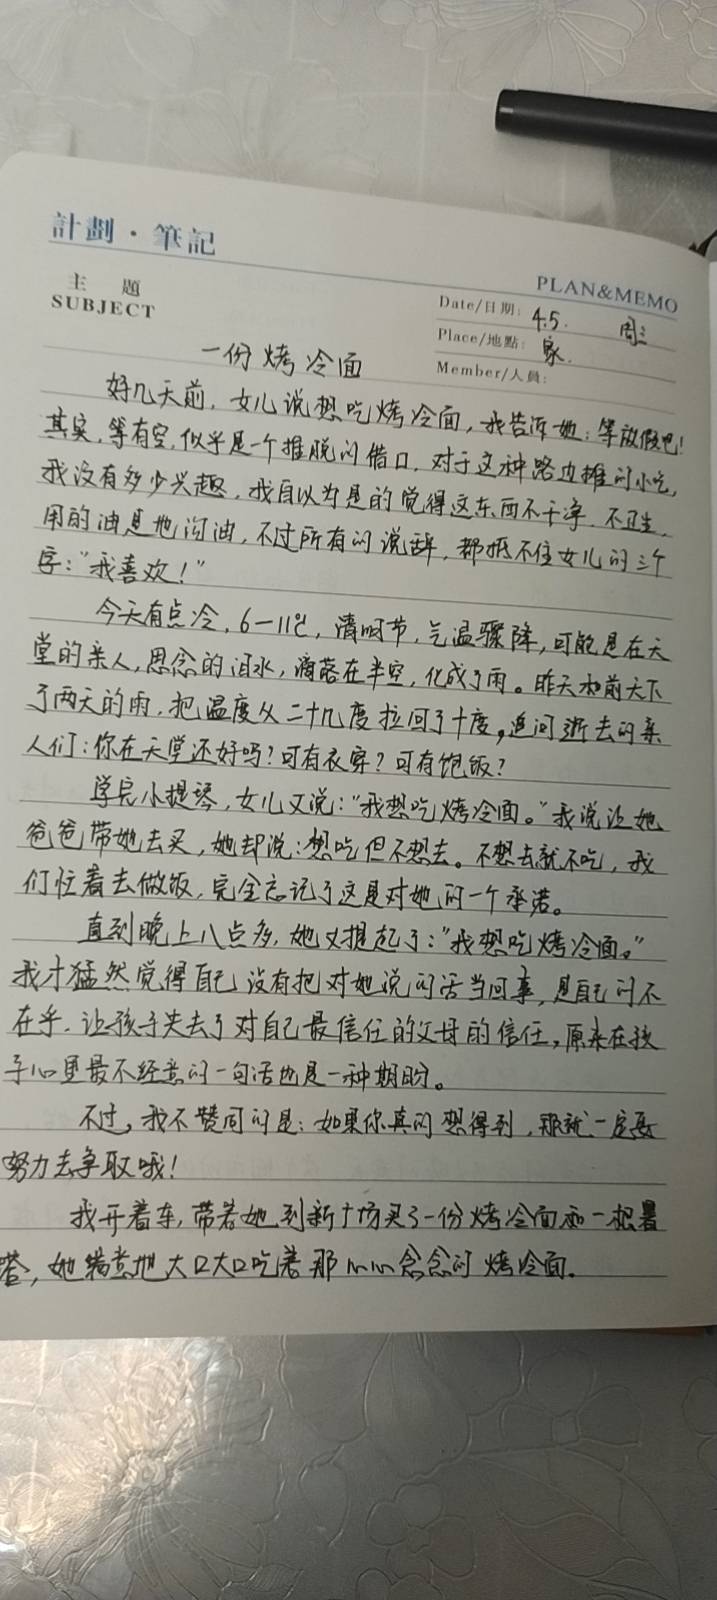 計劃·筆記
PLAN&MEMO
主題
SUBJECT
Date/日期: 4.5. 周三
Place/地點: 家.
Member/人員:
一份烤冷面
好几天前，女儿说想吃烤冷面，我告诉她：等放假吧！
其实，等有空，似乎是一个推脱的借口，对于这种路边摊的小吃，
我没有多少兴趣，我自以为是的觉得这东西不干净，不卫生，
用的油是地沟油，不过所有的说辞，都抵不住女儿的三个
字：“我喜欢！”
今天有点冷，6—11℃，清明节，气温骤降，可能是在天
堂的亲人，思念的泪水，滴落在半空，化成了雨。昨天和前天下
了两天的雨，把温度从二十几度拉回了十度，追问逝去的亲
人们：你在天堂还好吗？可有衣穿？可有饱饭？
学完小提琴，女儿又说：“我想吃烤冷面。”我说让她
爸爸带她去买，她却说：想吃但不想去。不想去就不吃，我
们忙着去做饭，完全忘记了这是对她的一个承诺。
直到晚上八点多，她又提起了：“我想吃烤冷面。”
我才猛然觉得自己没有把对她说的话当回事，是自己的不
在乎，让孩子失去了对自己最信任的父母的信任，原来在孩
子心里最不经意的一句话也是一种期盼。
不过，我不赞同的是：如果你真的想得到，那就一定要
努力去争取哦！
我开着车，带着她到新广场买了一份烤冷面和一根暑
塔，她满意地大口大口吃着那心心念念的烤冷面.